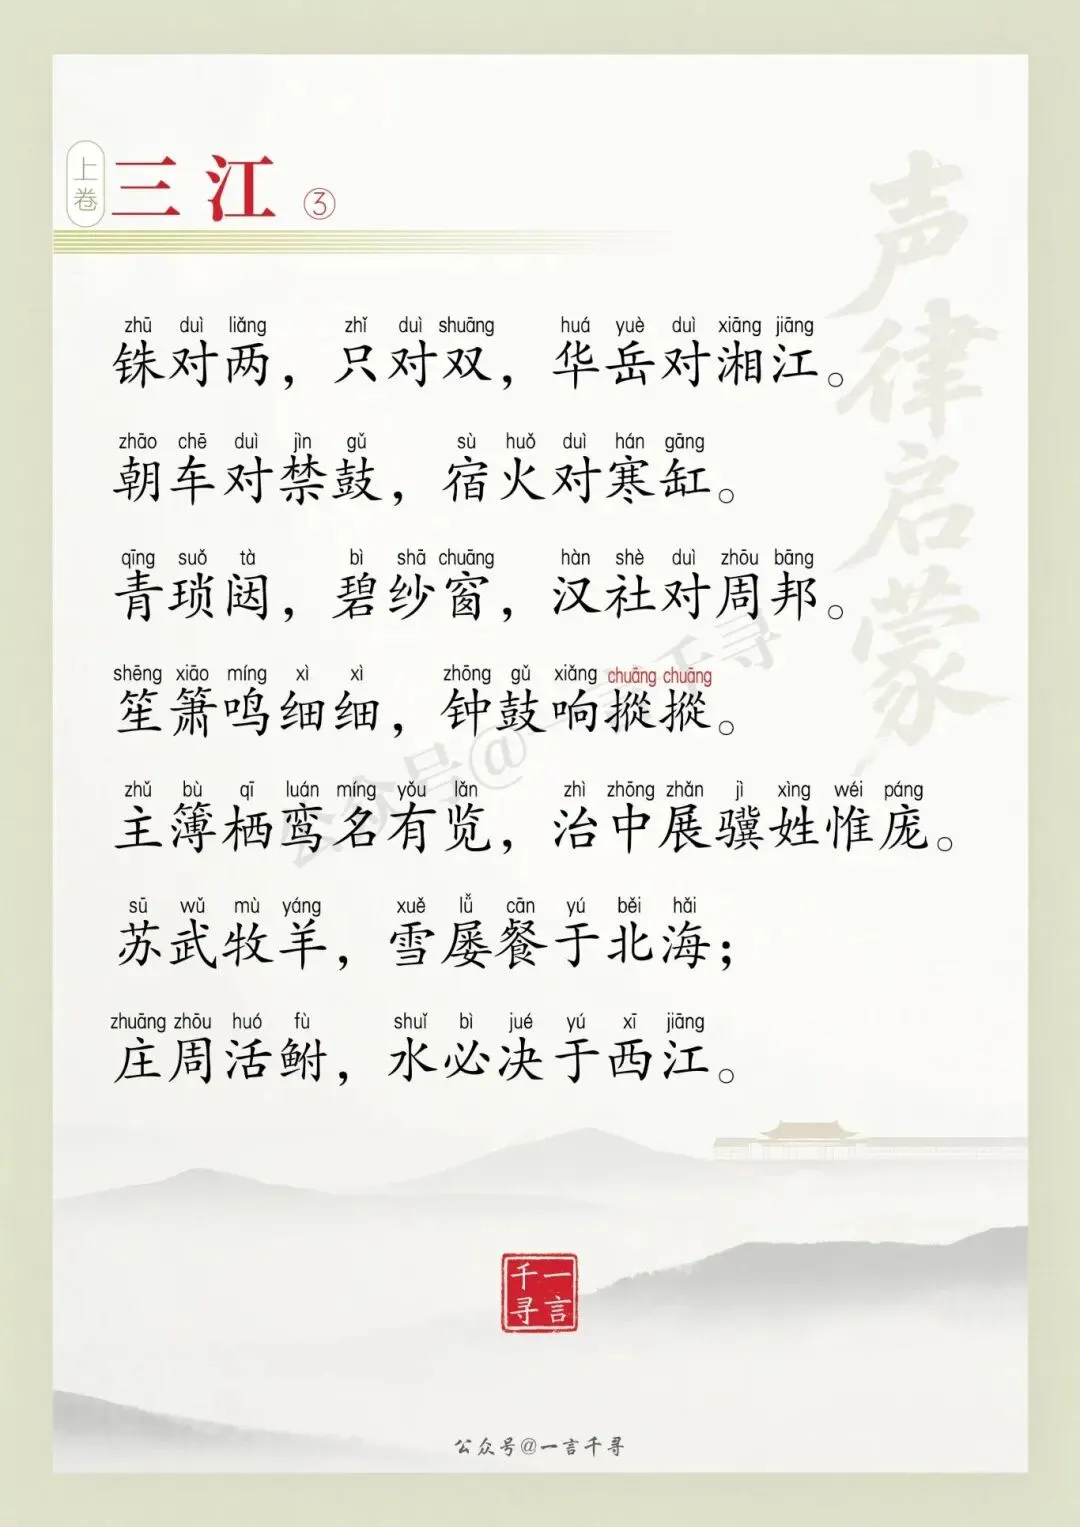 上卷
三江 ③
声律启蒙
zhū duì liǎng zhǐ duì shuāng huá yuè duì xiāng jiāng
铢对两，只对双，华岳对湘江。
zhāo chē duì jìn gǔ sù huǒ duì hán gāng
朝车对禁鼓，宿火对寒缸。
qīng suǒ tà bì shā chuāng hàn shè duì zhōu bāng
青琐闼，碧纱窗，汉社对周邦。
shēng xiāo míng xì xì zhōng gǔ xiǎng chuāng chuāng
笙箫鸣细细，钟鼓响摐摐。
zhǔ bù qī luán míng yǒu lǎn zhì zhōng zhǎn jì xìng wéi páng
主簿栖鸾名有览，治中展骥姓惟庞。
sū wǔ mù yáng xuě lǚ cān yú běi hǎi
苏武牧羊，雪屡餐于北海；
zhuāng zhōu huó fù shuǐ bì jué yú xī jiāng
庄周活鲋，水必决于西江。
公众号@一言千寻
一言千寻
公众号@一言千寻